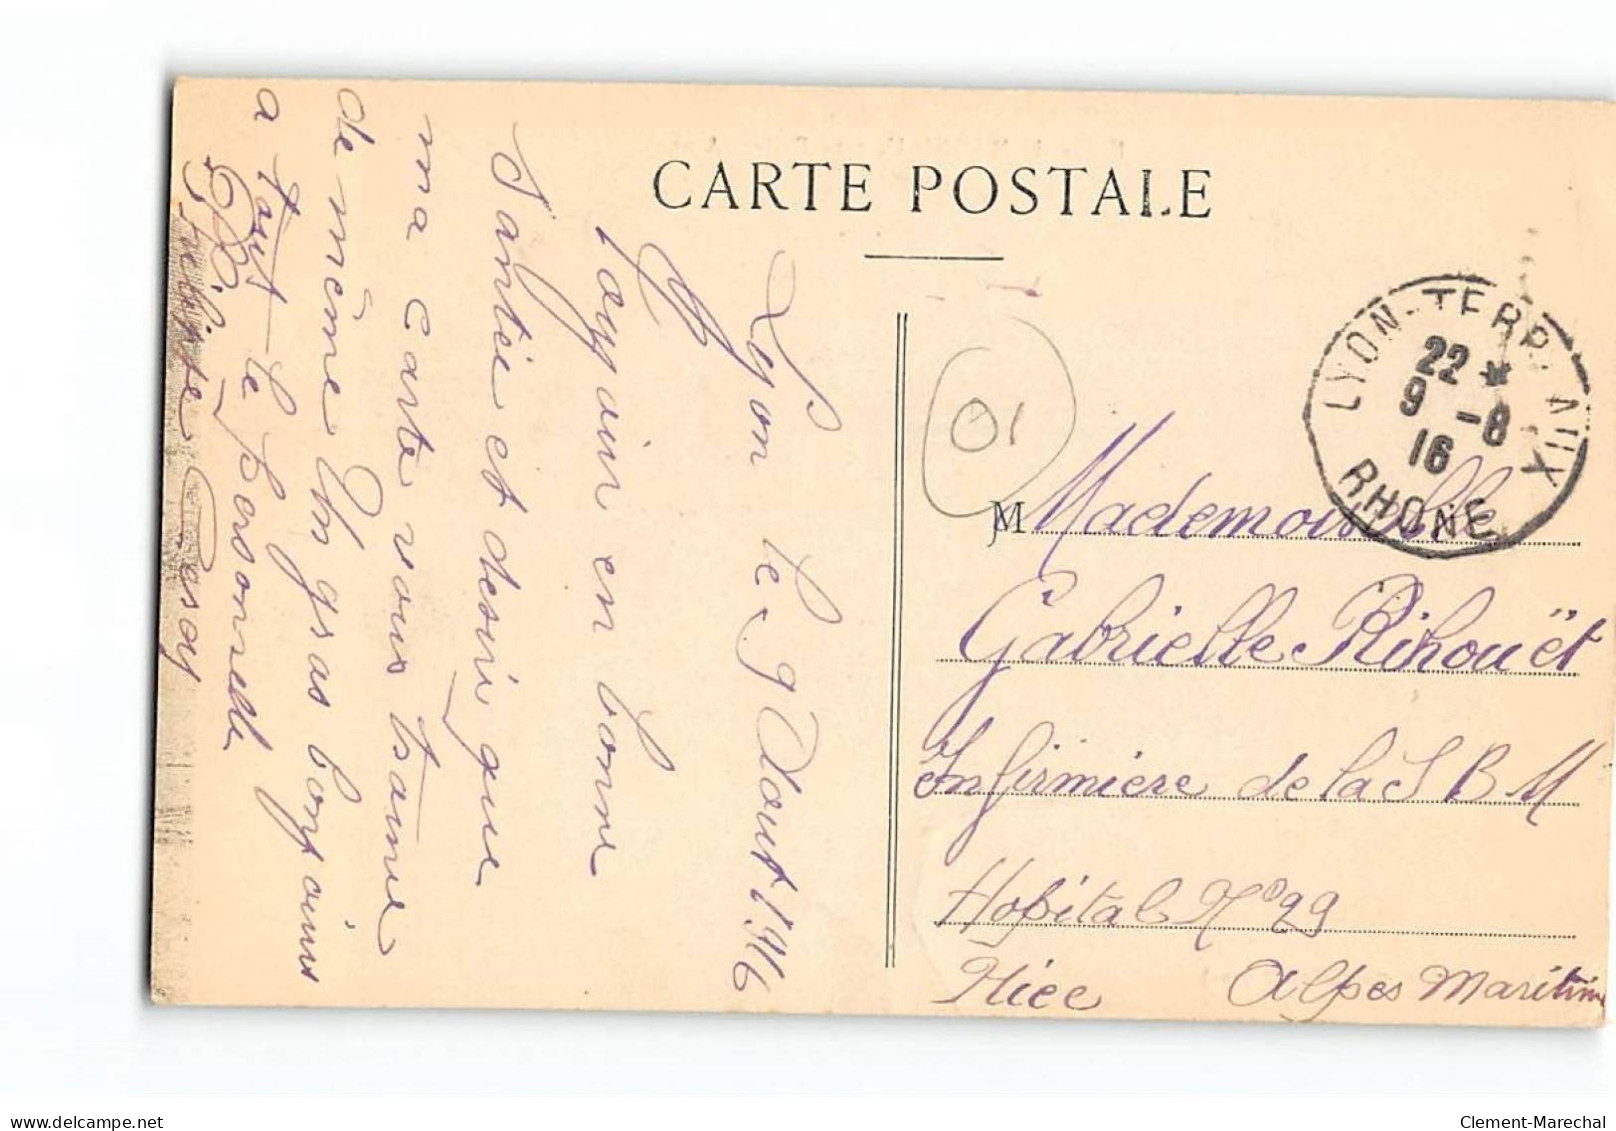 CARTE POSTALE
Lyon le 9 Aout 1916
Toujour en bonne
Santée et desire que
ma carte vous trouve
de même Un gras bonjour
a tout le personnelle
LYON-TERREAUX
22 *
9 -8
16
RHONE
01
M Mademoiselle
Gabrielle Rihouët
Infirmiere de la S B M
Hopital No 29
Nice Alpes Maritime
Clement-Marechal